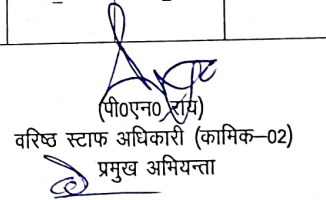 (पी0एन0 राय)
वरिष्ठ स्टाफ अधिकारी (कामिक–02)
प्रमुख अभियन्ता